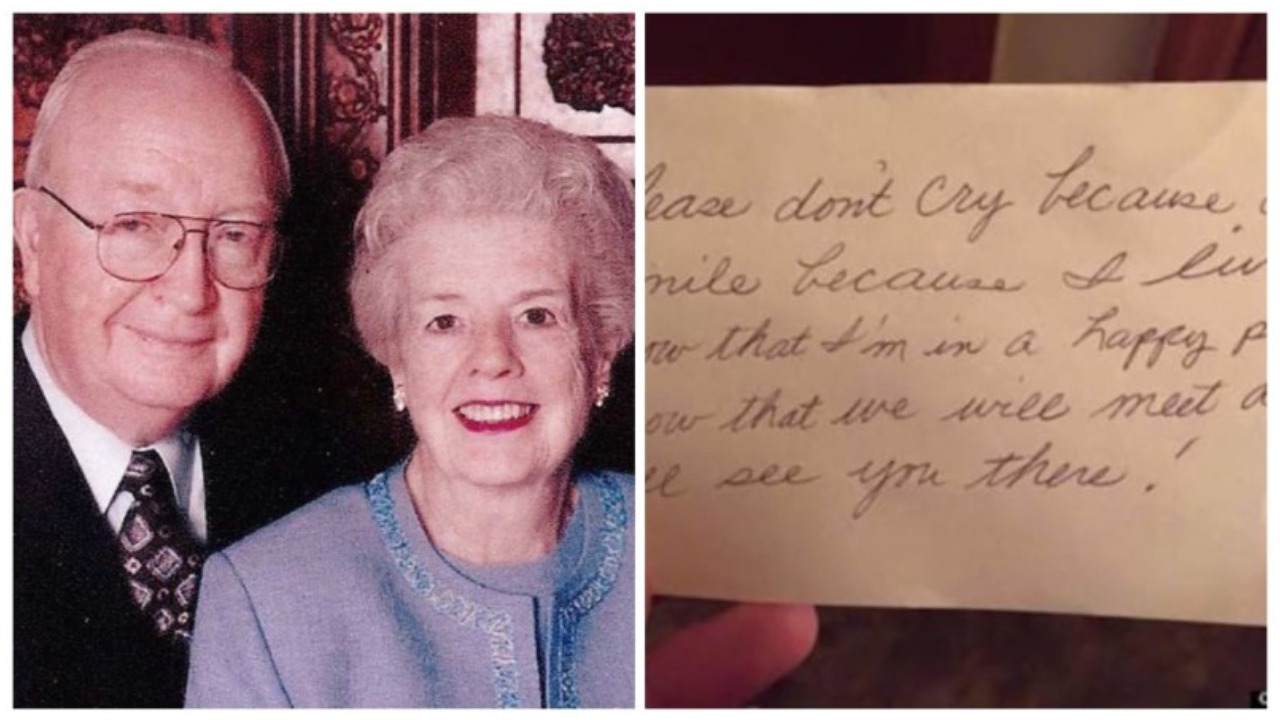 ease don't cry because
mile because I liv
ow that I'm in a happy p
ow that we will meet a
ll see you there!